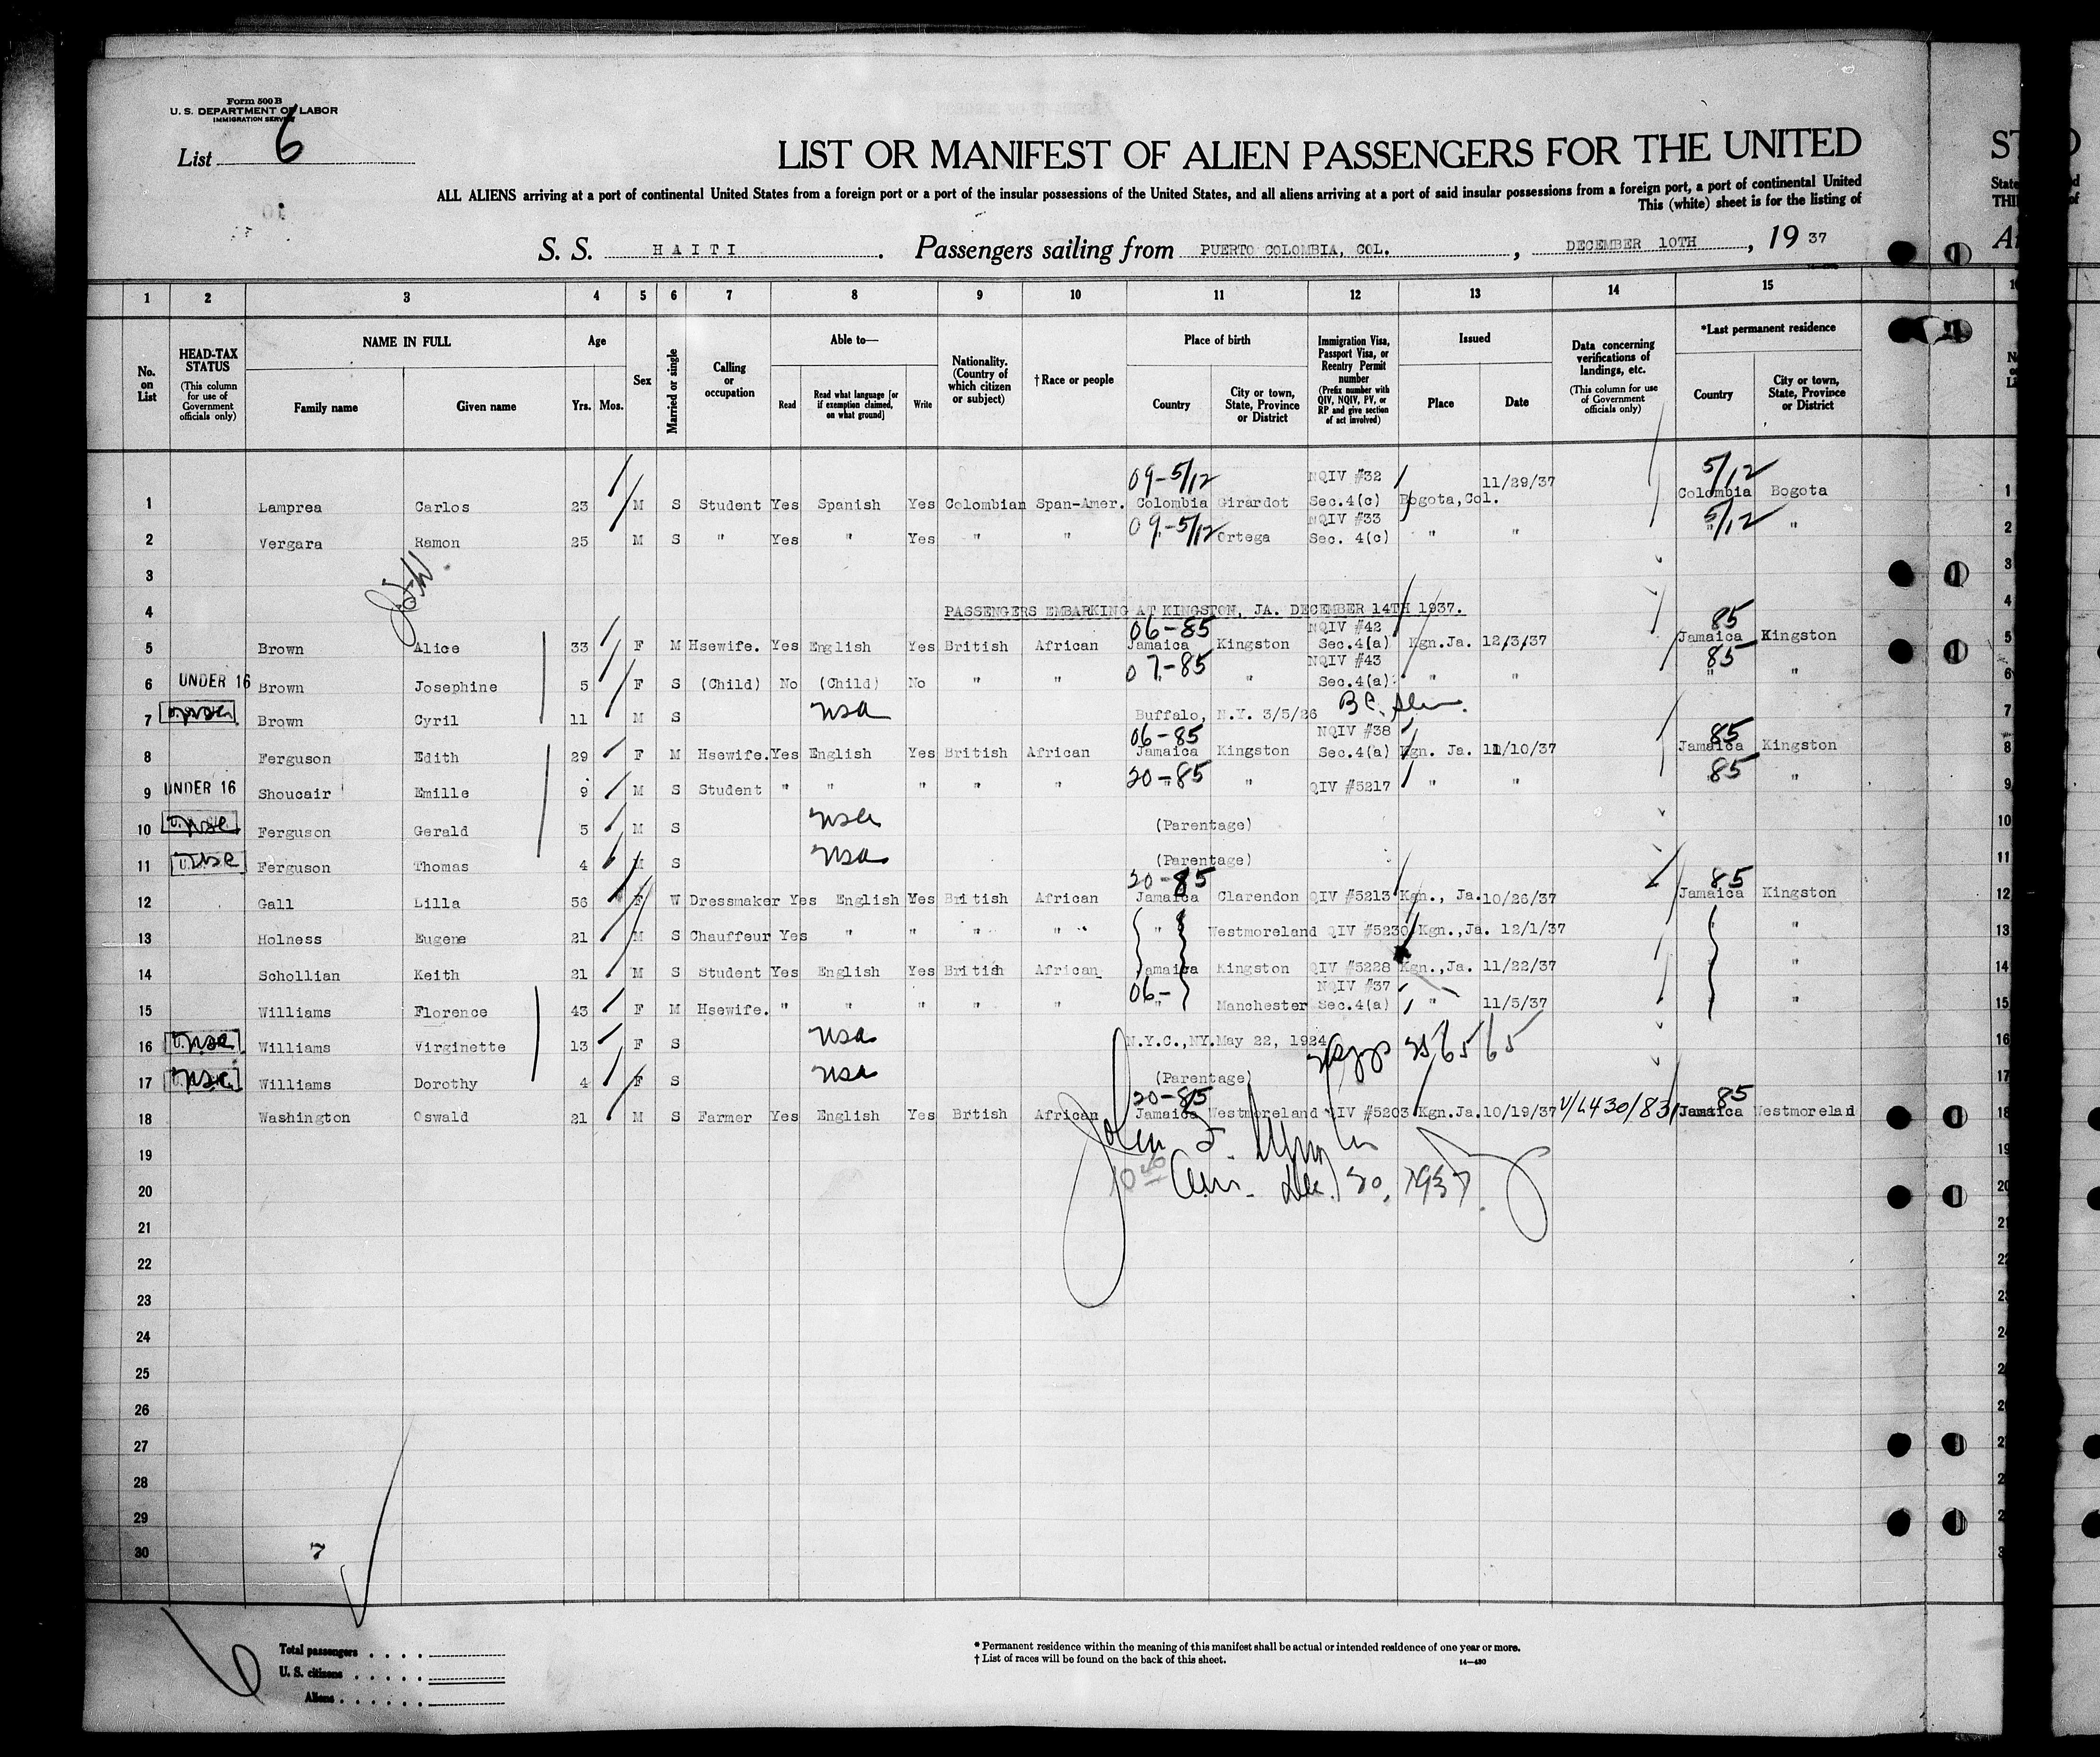 Form 500 B
U. S. DEPARTMENT OF LABOR
IMMIGRATION SERVICE
List 6
LIST OR MANIFEST OF ALIEN PASSENGERS FOR THE UNITED
ALL ALIENS arriving at a port of continental United States from a foreign port or a port of the insular possessions of the United States, and all aliens arriving at a port of said insular possessions from a foreign port, a port of continental United
This (white) sheet is for the listing of
S. S. HAITI. Passengers sailing from PUERTO COLOMBIA, COL., DECEMBER 10TH, 19 37
1 2 3 4 5 6 7 8 9 10 11 12 13 14 15
No. on List
HEAD-TAX STATUS (This column for use of Government officials only)
NAME IN FULL
Family name Given name
Age
Yrs. Mos.
Sex
Married or single
Calling or occupation
Able to—
Read Read what language [or if exemption claimed, on what ground] Write
Nationality. (Country of which citizen or subject)
† Race or people
Place of birth
Country City or town, State, Province or District
Immigration Visa, Passport Visa, or Reentry Permit number (Prefix number with QIV, NQIV, PV, or RP and give section of act involved)
Issued
Place Date
Data concerning verifications of landings, etc. (This column for use of Government officials only)
*Last permanent residence
Country City or town, State, Province or District
09-5/12 NQIV #32 11/29/37 5/12
1 Lamprea Carlos 23 M S Student Yes Spanish Yes Colombian Span-Amer. Colombia Girardot Sec.4(c) Bogota,Col. Colombia Bogota 1
09-5/12 NQIV #33 5/12
2 Vergara Ramon 25 M S " Yes " Yes " " " Ortega Sec. 4(c) " " " " 2
3 3
4 PASSENGERS EMBARKING AT KINGSTON, JA. DECEMBER 14TH 1937. 4
06-85 NQIV #42 85
5 Brown Alice 33 F M Hsewife. Yes English Yes British African Jamaica Kingston Sec.4(a) Kgn.Ja. 12/3/37 Jamaica Kingston 5
07-85 NQIV #43 85
6 UNDER 16 Brown Josephine 5 F S (Child) No (Child) No " " " " Sec.4(a) " " " " 6
7 Brown Cyril 11 M S usa Buffalo, N.Y. 3/5/26 B C. 7
06-85 NQIV #38 85
8 Ferguson Edith 29 F M Hsewife. Yes English Yes British African Jamaica Kingston Sec.4(a) Kgn. Ja. 11/10/37 Jamaica Kingston 8
20-85 85
9 UNDER 16 Shoucair Emille 9 M S Student " " " " " " " QIV #5217 " " " 9
10 Ferguson Gerald 5 M S usa (Parentage) 10
11 Ferguson Thomas 4 M S usa (Parentage) 11
20-85 85
12 Gall Lilla 56 F W Dressmaker Yes English Yes British African Jamaica Clarendon QIV #5213 Kgn., Ja. 10/26/37 Jamaica Kingston 12
13 Holness Eugene 21 M S Chauffeur Yes " " " " " Westmoreland QIV #5230 Kgn.,Ja. 12/1/37 " " 13
14 Schollian Keith 21 M S Student Yes English Yes British African Jamaica Kingston QIV #5228 Kgn.,Ja. 11/22/37 " 14
06- NQIV #37
15 Williams Florence 43 F M Hsewife. " " " " " " Manchester Sec.4(a) " 11/5/37 " 15
16 Williams Virginette 13 F S usa N.Y.C.,NY.May 22, 1924 16
17 Williams Dorothy 4 F S usa (Parentage) 17
20-85 85
18 Washington Oswald 21 M S Farmer Yes English Yes Brtish African Jamaica Westmoreland QIV #5203 Kgn.Ja. 10/19/37 V/L430/831 Jamaica Westmorelan 18
19
20 Dec. 20, 1937
21
22
23
24
25
26
27
28
29
30 7
6
Total passengers
U. S. citizens
Aliens
* Permanent residence within the meaning of this manifest shall be actual or intended residence of one year or more.
† List of races will be found on the back of this sheet.
14—430